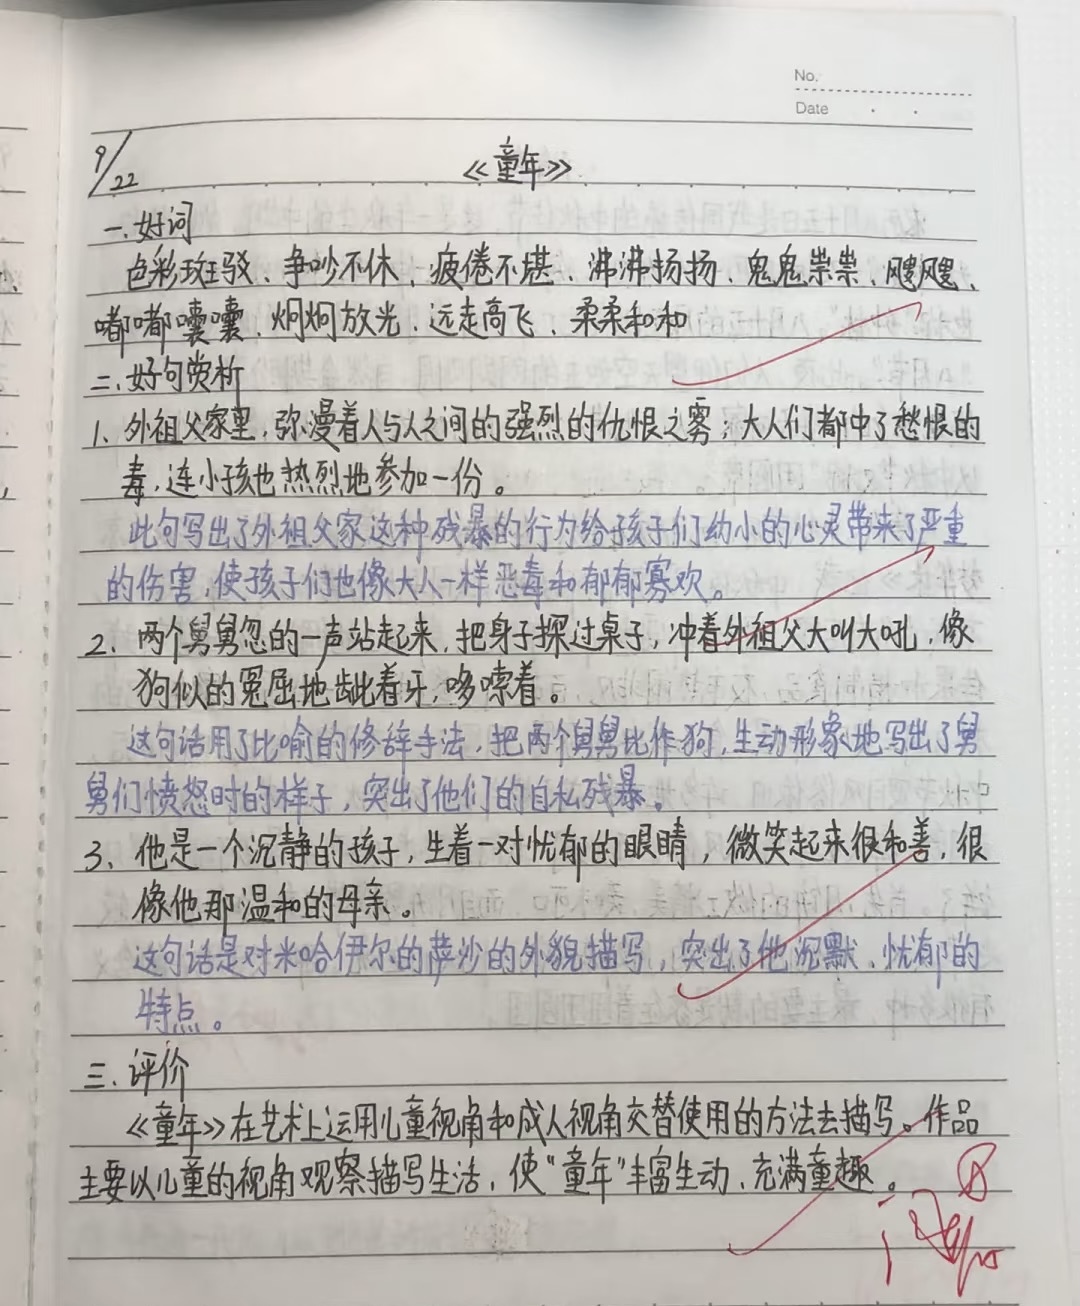 No.
Date
9/22
《童年》
一.好词
色彩斑驳、争吵不休、疲倦不堪、沸沸扬扬、鬼鬼祟祟、飕飕、
嘟嘟囔囔、炯炯放光、远走高飞、柔柔和和
二.好句赏析
1、外祖父家里,弥漫着人与人之间的强烈的仇恨之雾;大人们都中了愁恨的
毒,连小孩也热烈地参加一份。
此句写出了外祖父家这种残暴的行为给孩子们幼小的心灵带来了严重
的伤害,使孩子们也像大人一样恶毒和郁郁寡欢。
2、两个舅舅忽的一声站起来,把身子探过桌子,冲着外祖父大叫大吼,像
狗似的冤屈地龇着牙,哆嗦着。
这句话用了比喻的修辞手法,把两个舅舅比作狗,生动形象地写出了舅
舅们愤怒时的样子,突出了他们的自私残暴。
3、他是一个沉静的孩子,生着一对忧郁的眼睛,微笑起来很和善,很
像他那温和的母亲。
这句话是对米哈伊尔的萨沙的外貌描写,突出了他沉默、忧郁的
特点。
三.评价
《童年》在艺术上运用儿童视角和成人视角交替使用的方法去描写。作品
主要以儿童的视角观察描写生活,使“童年”丰富生动、充满童趣。